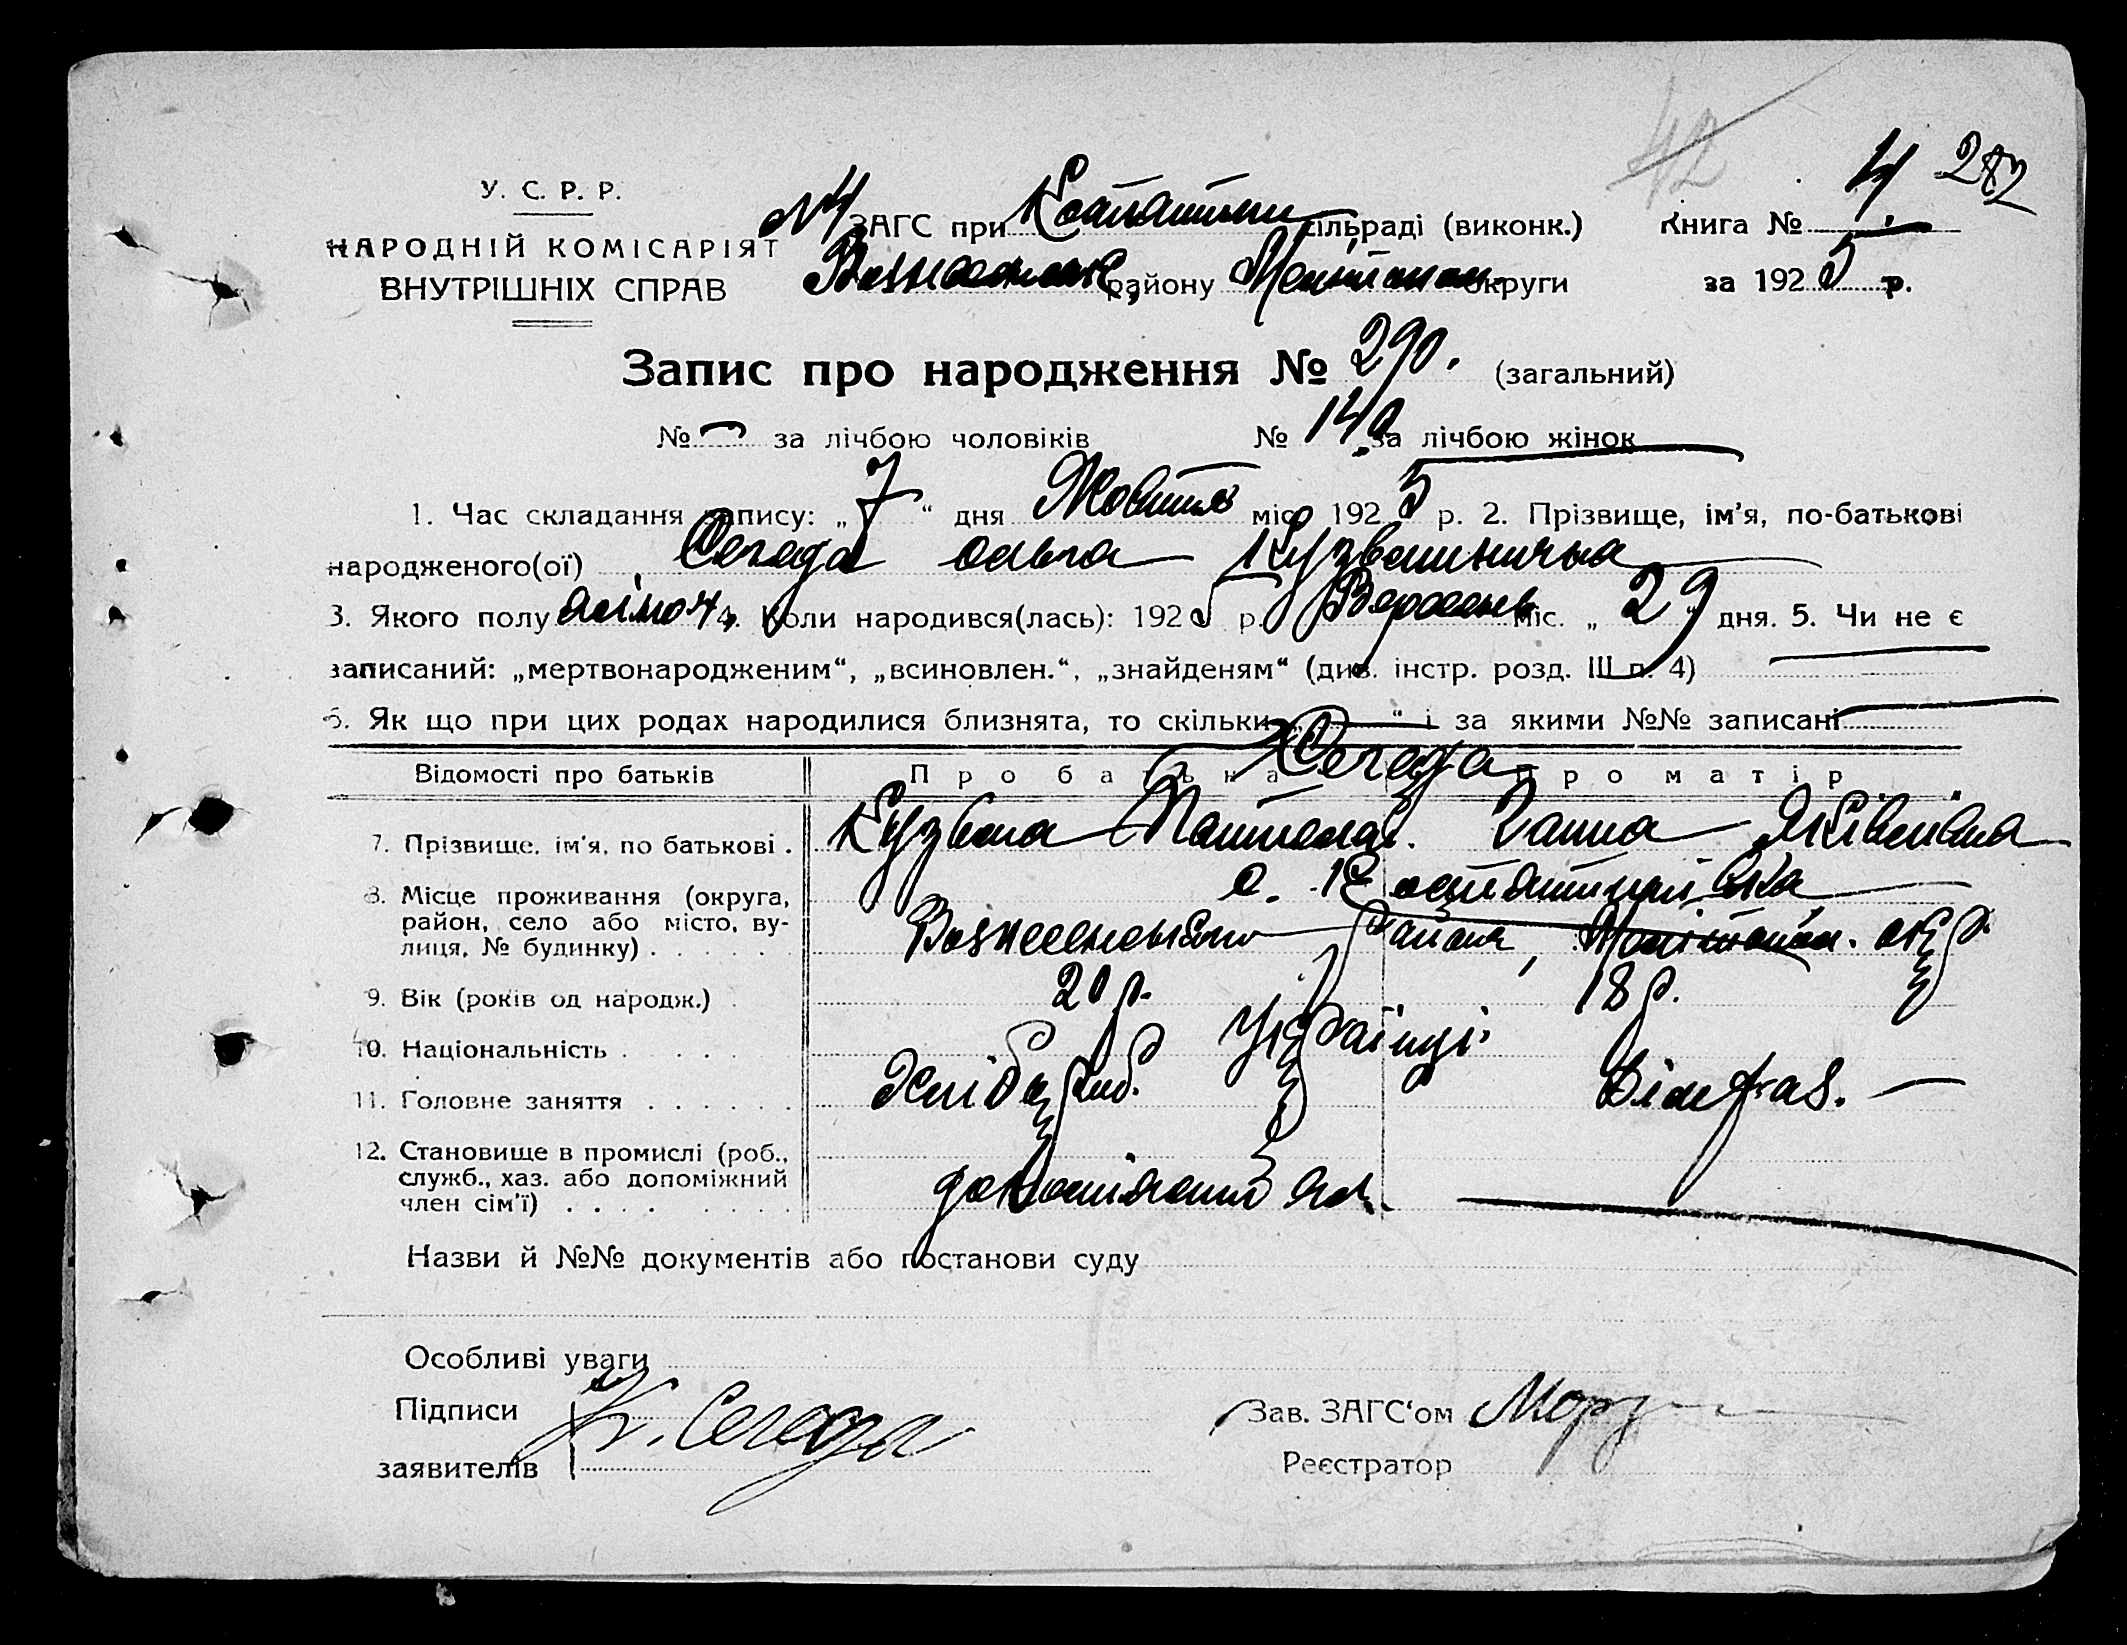 42
4
282
У. С. Р. Р.
НАРОДНІЙ КОМІСАРІЯТ
ВНУТРІШНІХ СПРАВ
ЗАГС при сільраді (виконк.) Книга № 4.
району округи за 1925 р.
Запис про народження № 290. (загальний)
№ — за лічбою чоловіків № 140 за лічбою жінок
1. Час складання запису: „7“ дня Жовтня міс. 1925 р. 2. Прізвище, ім'я, по-батькові
народженого(ої) Середа Ольга
3. Якого полу жіноч. 4. Коли народився(лась): 1925 р. Вересень міс. „29“ дня. 5. Чи не є
записаний: „мертвонародженим“, „всиновлен.“, „знайденям“ (див. інстр. розд. III п. 4) —
6. Як що при цих родах народилися близнята, то скільки „—“ і за якими №№ записані —
Відомості про батьків Про батька Про матір
Середа
7. Прізвище, ім'я, по батькові . Кузьма Ганна Яківлівна
8. Місце проживання (округа,
район, село або місто, ву-
лиця, № будинку) . . . . . . Вознесенського району, окр.
9. Вік (років од народж.) . 20 р. 18 р.
10. Національність . . . . Українці
11. Головне заняття . . . . . . Хлібороб. —
12. Становище в промислі (роб.,
служб., хаз. або допоміжний
член сім'ї) . . . . . . . . —
Назви й №№ документів або постанови суду
Особливі уваги
Підписи К. Середа Зав. ЗАГС‘ом
заявителів Реєстратор